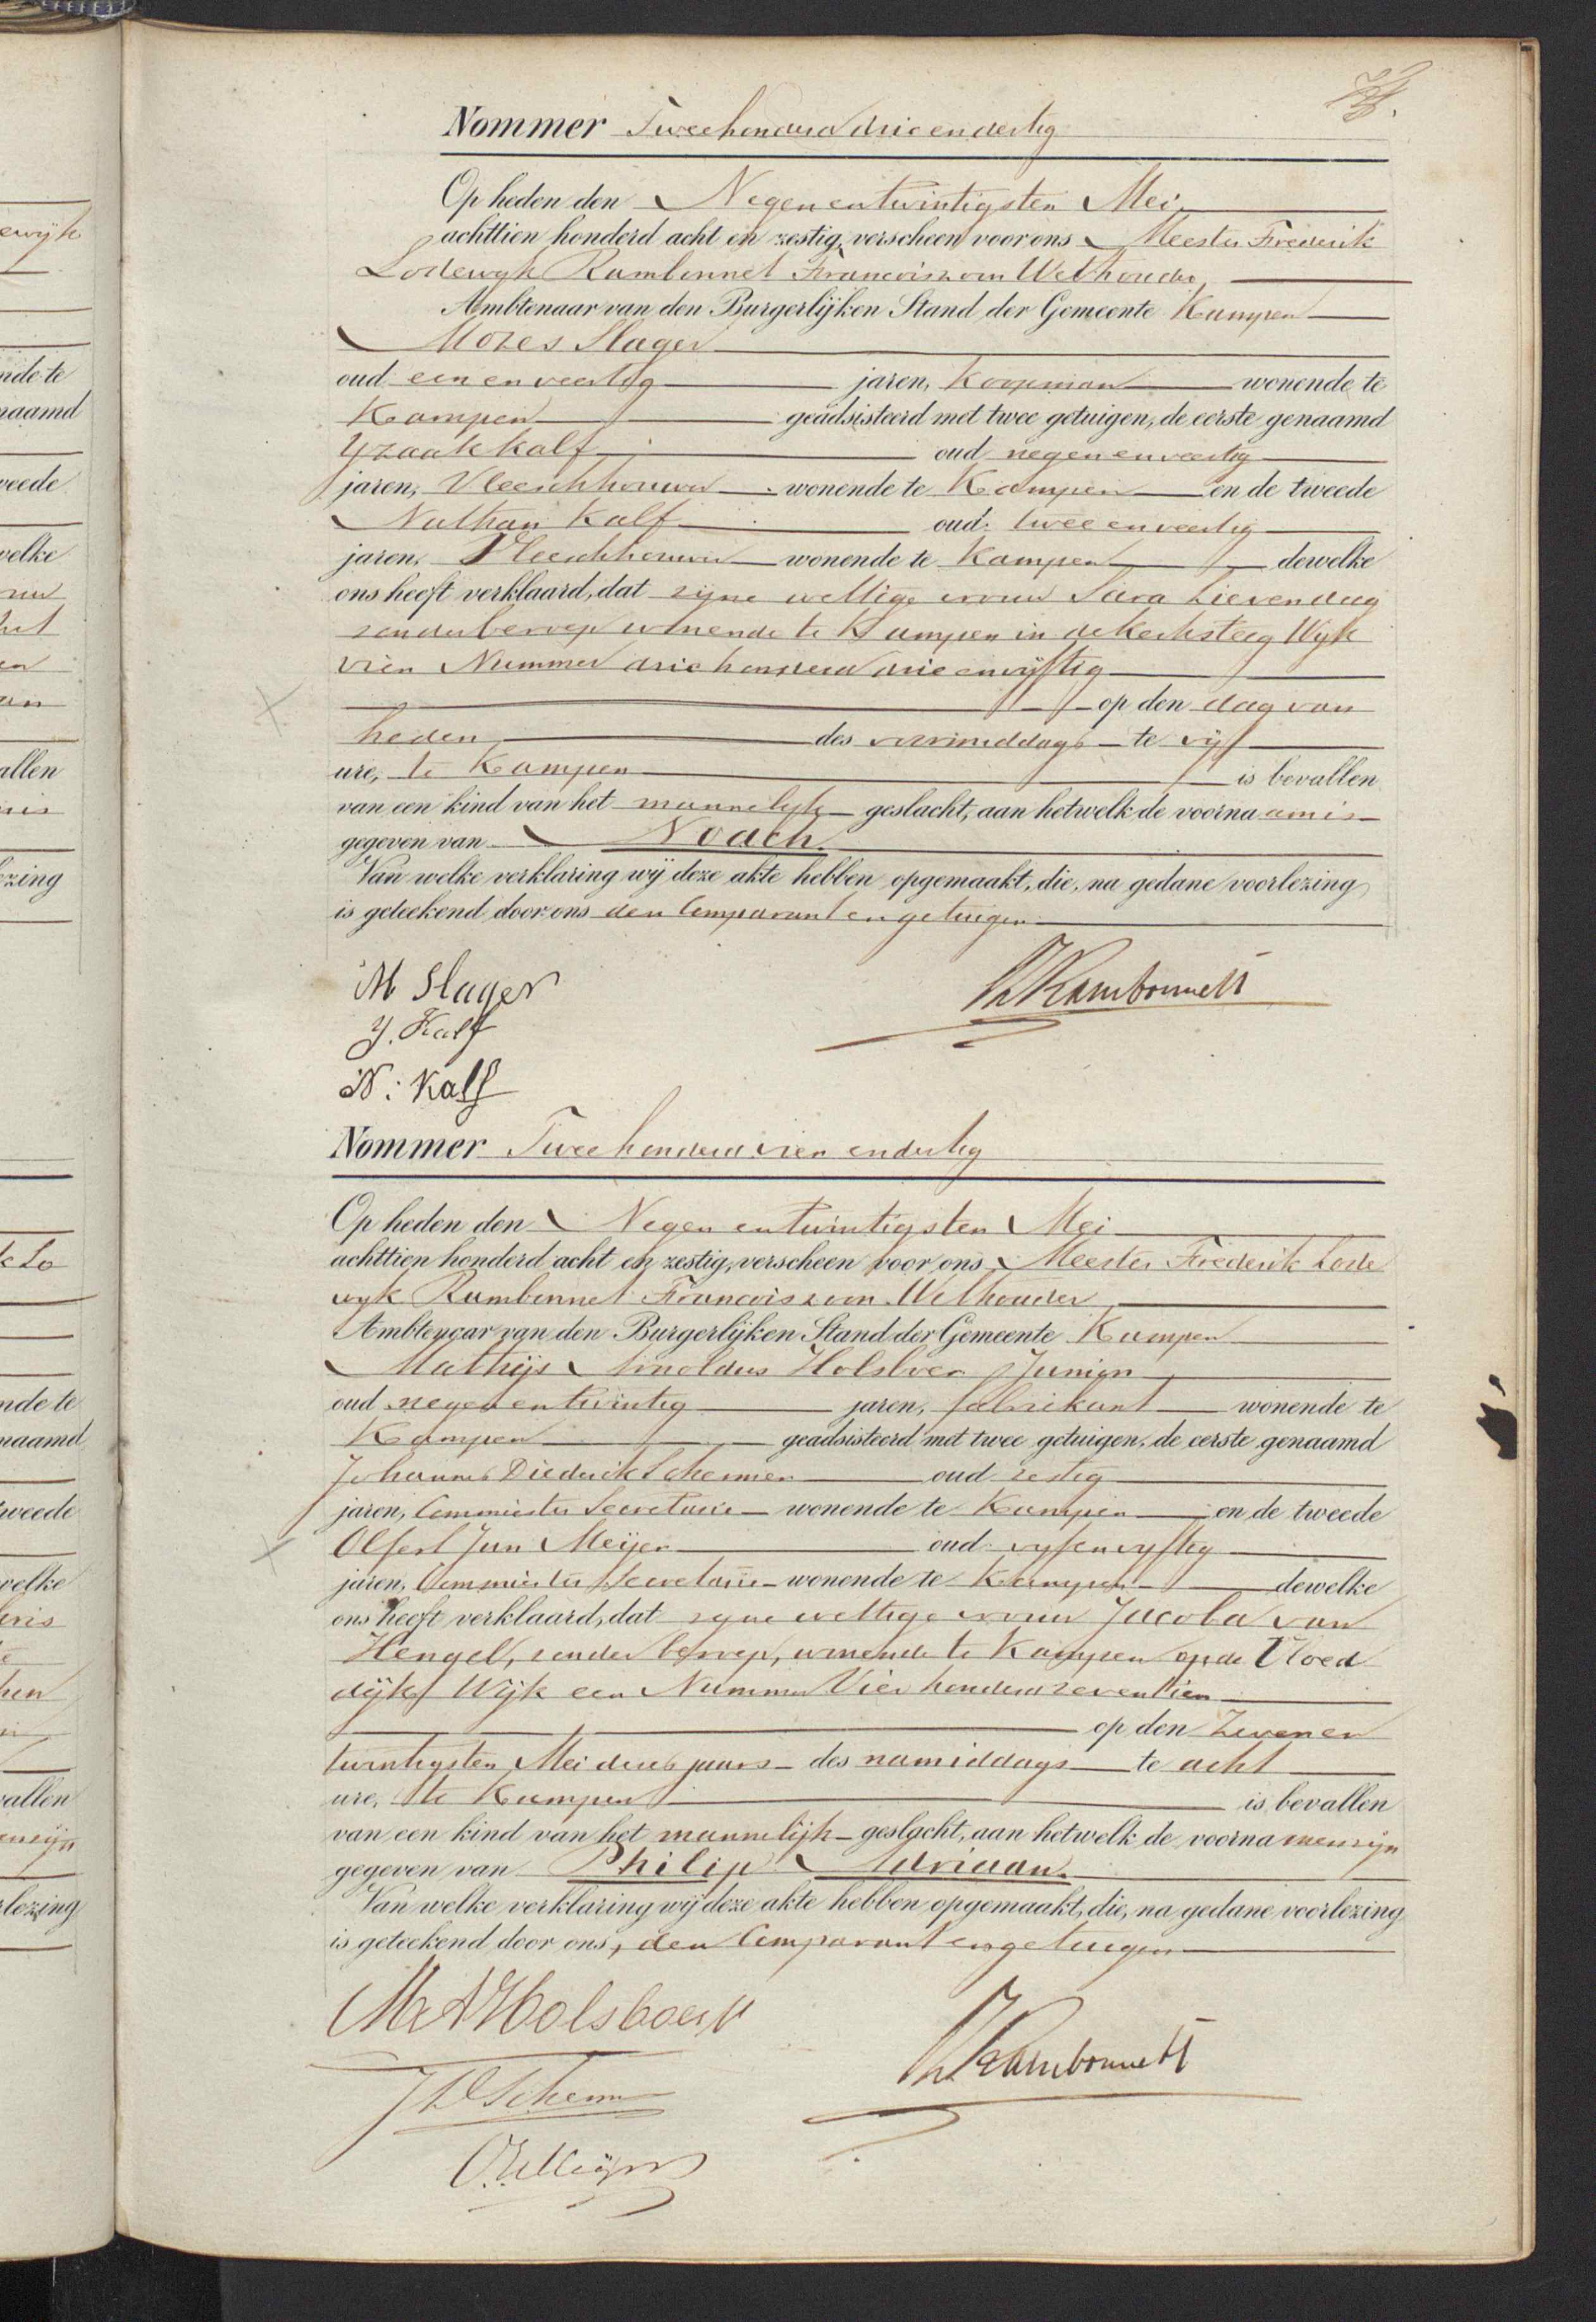 Nommer Tweehonderd drie en dertig
Op heden den Negenentwintigsten Mei
achttien honderd acht en zestig, verscheen voor ons Meester Frederik
Lodewyk Rambonnet Francoiszoon Wethouder
Ambtenaar van den Burgerlijken Stand der Gemeente Kampen
Mozes Slager
oud een en veertig jaren, Koopman wonende te
Kampen geadsisteerd met twee getuigen, de eerste genaamd
Yzaak Kalf oud negen en veertig
jaren, Vleeschhouwer wonende te Kampen en de tweede
Nathan Kalf oud twee en veertig
jaren, Vleeschhouwer wonende te Kampen dewelke
ons heeft verklaard, dat zyne wettige vrouw Sara Lievendag
zonder beroep wonende te Kampen in de Kerksteeg Wyk
vier Nummer drie honderd drie en vyftig
op den dag van
heden des voormiddags te vyf
ure, te Kampen is bevallen
van een kind van het mannelyk geslacht, aan hetwelk de voornaam is
gegeven van Noach.
Van welke verklaring wij deze akte hebben opgemaakt, die, na gedane voorlezing
is geteekend door ons den Comparant en getuigen
M Slager
Rambonnet
Y. Kalf
N: Kalf
Nommer Tweehonderd vier en dertig
Op heden den Negen en twintigsten Mei
achttien honderd acht en zestig, verscheen voor ons Meester Frederik Lode
wyk Rambonnet Francoiszoon Wethouder
Ambtenaar van den Burgerlijken Stand der Gemeente Kampen
Mathijs Arnoldus Holsboer Junior
oud negen en twintig jaren, fabrikant wonende te
Kampen geadsisteerd met twee getuigen, de eerste genaamd
Johannes Diederik Schemmer oud zestig
jaren, Commies ter Secretarie wonende te Kampen en de tweede
Olfert Jan Meijer oud vyf en vyftig
jaren, Commies ter Secretarie wonende te Kampen dewelke
ons heeft verklaard, dat zyne wettige vrouw Jacoba van
Hengel, zonder beroep, wonende te Kampen op de Vloed
dijk Wijk een Nummer Vier honderd zeventien
op den Zeven en
twintigsten Mei dezes jaars des namiddags te acht
ure, te Kampen is bevallen
van een kind van het mannelijk geslacht, aan hetwelk de voornamen zyn
gegeven van Philip Adriaan.
Van welke verklaring wij deze akte hebben opgemaakt, die, na gedane voorlezing
is geteekend door ons, den Comparant en getuigen
M A Holsboer Jr
Rambonnet
JD Schemm
OJ Meijer